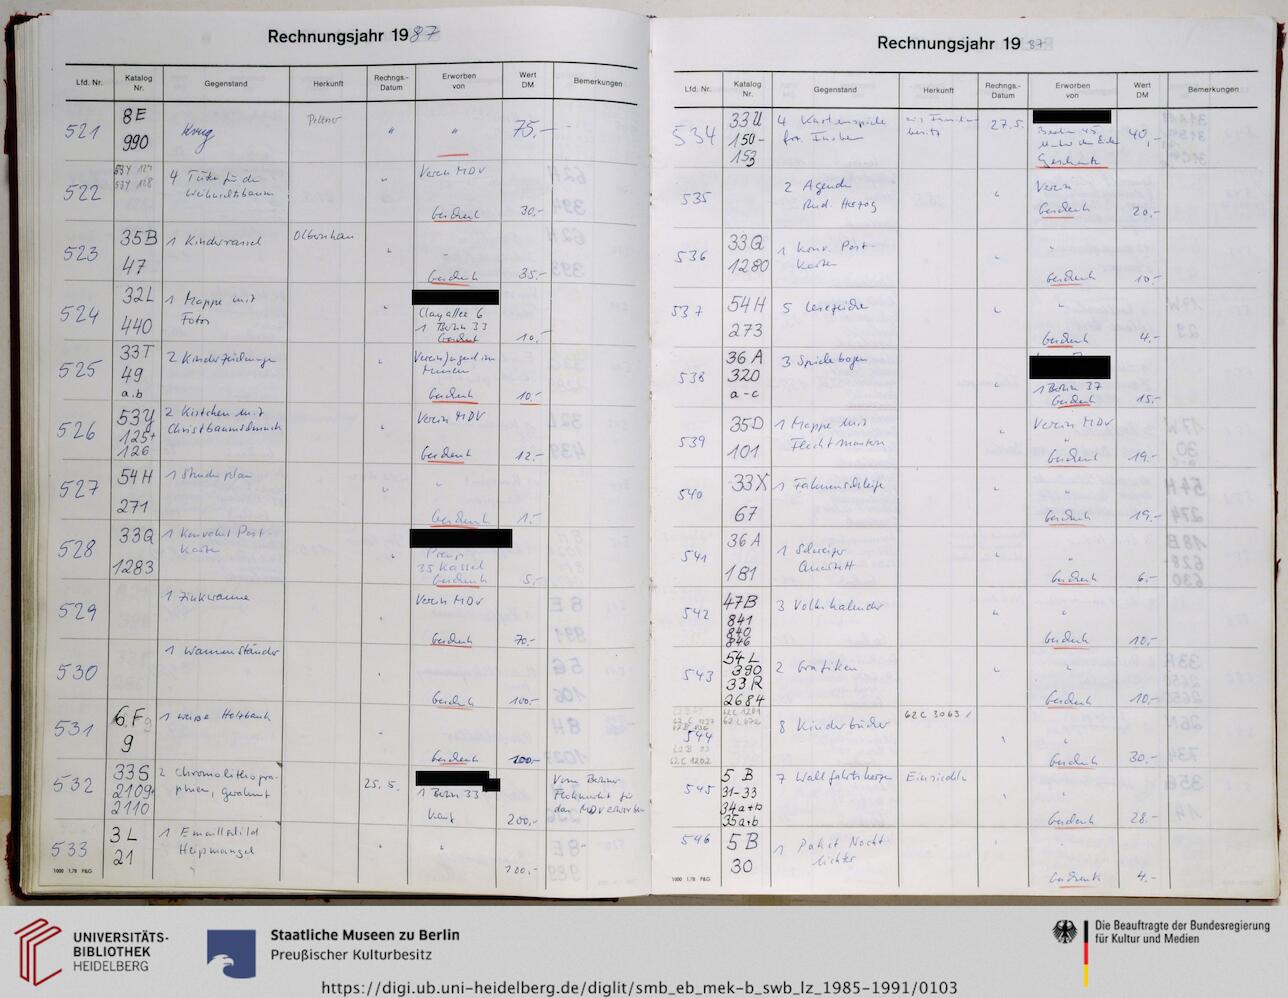 Rechnungsjahr 1987
Lfd. Nr. Katalog Nr. Gegenstand Herkunft Rechngs.-Datum Erworben von Wert DM Bemerkungen
521 8E 990 Krug " " 75,-
522 53Y 127 53Y 128 4 Tüte für den Weihnachtsbaum " Verein MDV Geschenk 30,-
523 35B 47 1 Kinderrassel Olbernhau " " Geschenk 35,-
524 32L 440 1 Mappe mit Fotos " Clayallee 6 1 Berlin 33 Geschenk 10,-
525 33T 49 a.b 2 Kinderzeichnungen " Verein Jugend im Museum Geschenk 10,-
526 53Y 125+ 126 2 Kistchen mit Christbaumschmuck " Verein MDV Geschenk 12,-
527 54H 271 1 Stundenplan " " Geschenk 1,-
528 33Q 1283 1 Konvolut Postkarten " 35 Kassel Geschenk 5,-
529 1 Zinkwanne " Verein MDV Geschenk 70,-
530 1 Wannenständer " Geschenk 100,-
531 6F 9 1 weiße Holzbank " Geschenk 100,-
532 33S 2109+ 2110 2 Chromolithographien, gerahmt 25.5. 1 Berlin 33 Kauf 200,- Vom Berliner Flohmarkt für das MDV erworben
533 3L 21 1 Emailleschild Heißmangel " " 100,-
1000 1.78 P&G
Rechnungsjahr 1987
Lfd. Nr. Katalog Nr. Gegenstand Herkunft Rechngs.-Datum Erworben von Wert DM Bemerkungen
534 33U 150-153 4 Kartenspiele aus Familienbesitz 27.5. Berlin 45 Unter den Eichen Geschenk 40,-
535 2 Agenda Rud. Hertzog " Verein Geschenk 20,-
536 33Q 1280 1 Konv. Postkarten " Geschenk 10,-
537 54H 273 5 Lesezeichen " " Geschenk 4,-
538 36A 320 a-c 3 Spielebogen " 1 Berlin 37 Geschenk 15,-
539 35D 101 1 Mappe mit Flechtmustern " Verein MDV Geschenk 19,-
540 33X 67 1 Fahnenschleife " " Geschenk 19,-
541 36A 181 1 " Geschenk 6,-
542 47B 841 840 846 3 Volkskalender " " Geschenk 10,-
543 54L 390 33R 2684 2 Grafiken " " Geschenk 10,-
544 8 Kinderbücher 62C 3063 " " Geschenk 30,-
545 5B 31-33 34a+b 35a+b 7 Wallfahrtskerzen Einsiedeln " " Geschenk 28,-
546 5B 30 1 Paket Nachtlichter " " Geschenk 4,-
1000 1.78 P&G
UNIVERSITÄTS-
BIBLIOTHEK
HEIDELBERG
Staatliche Museen zu Berlin
Preußischer Kulturbesitz
Die Beauftragte der Bundesregierung
für Kultur und Medien
https://digi.ub.uni-heidelberg.de/diglit/smb_eb_mek-b_swb_lz_1985-1991/0103